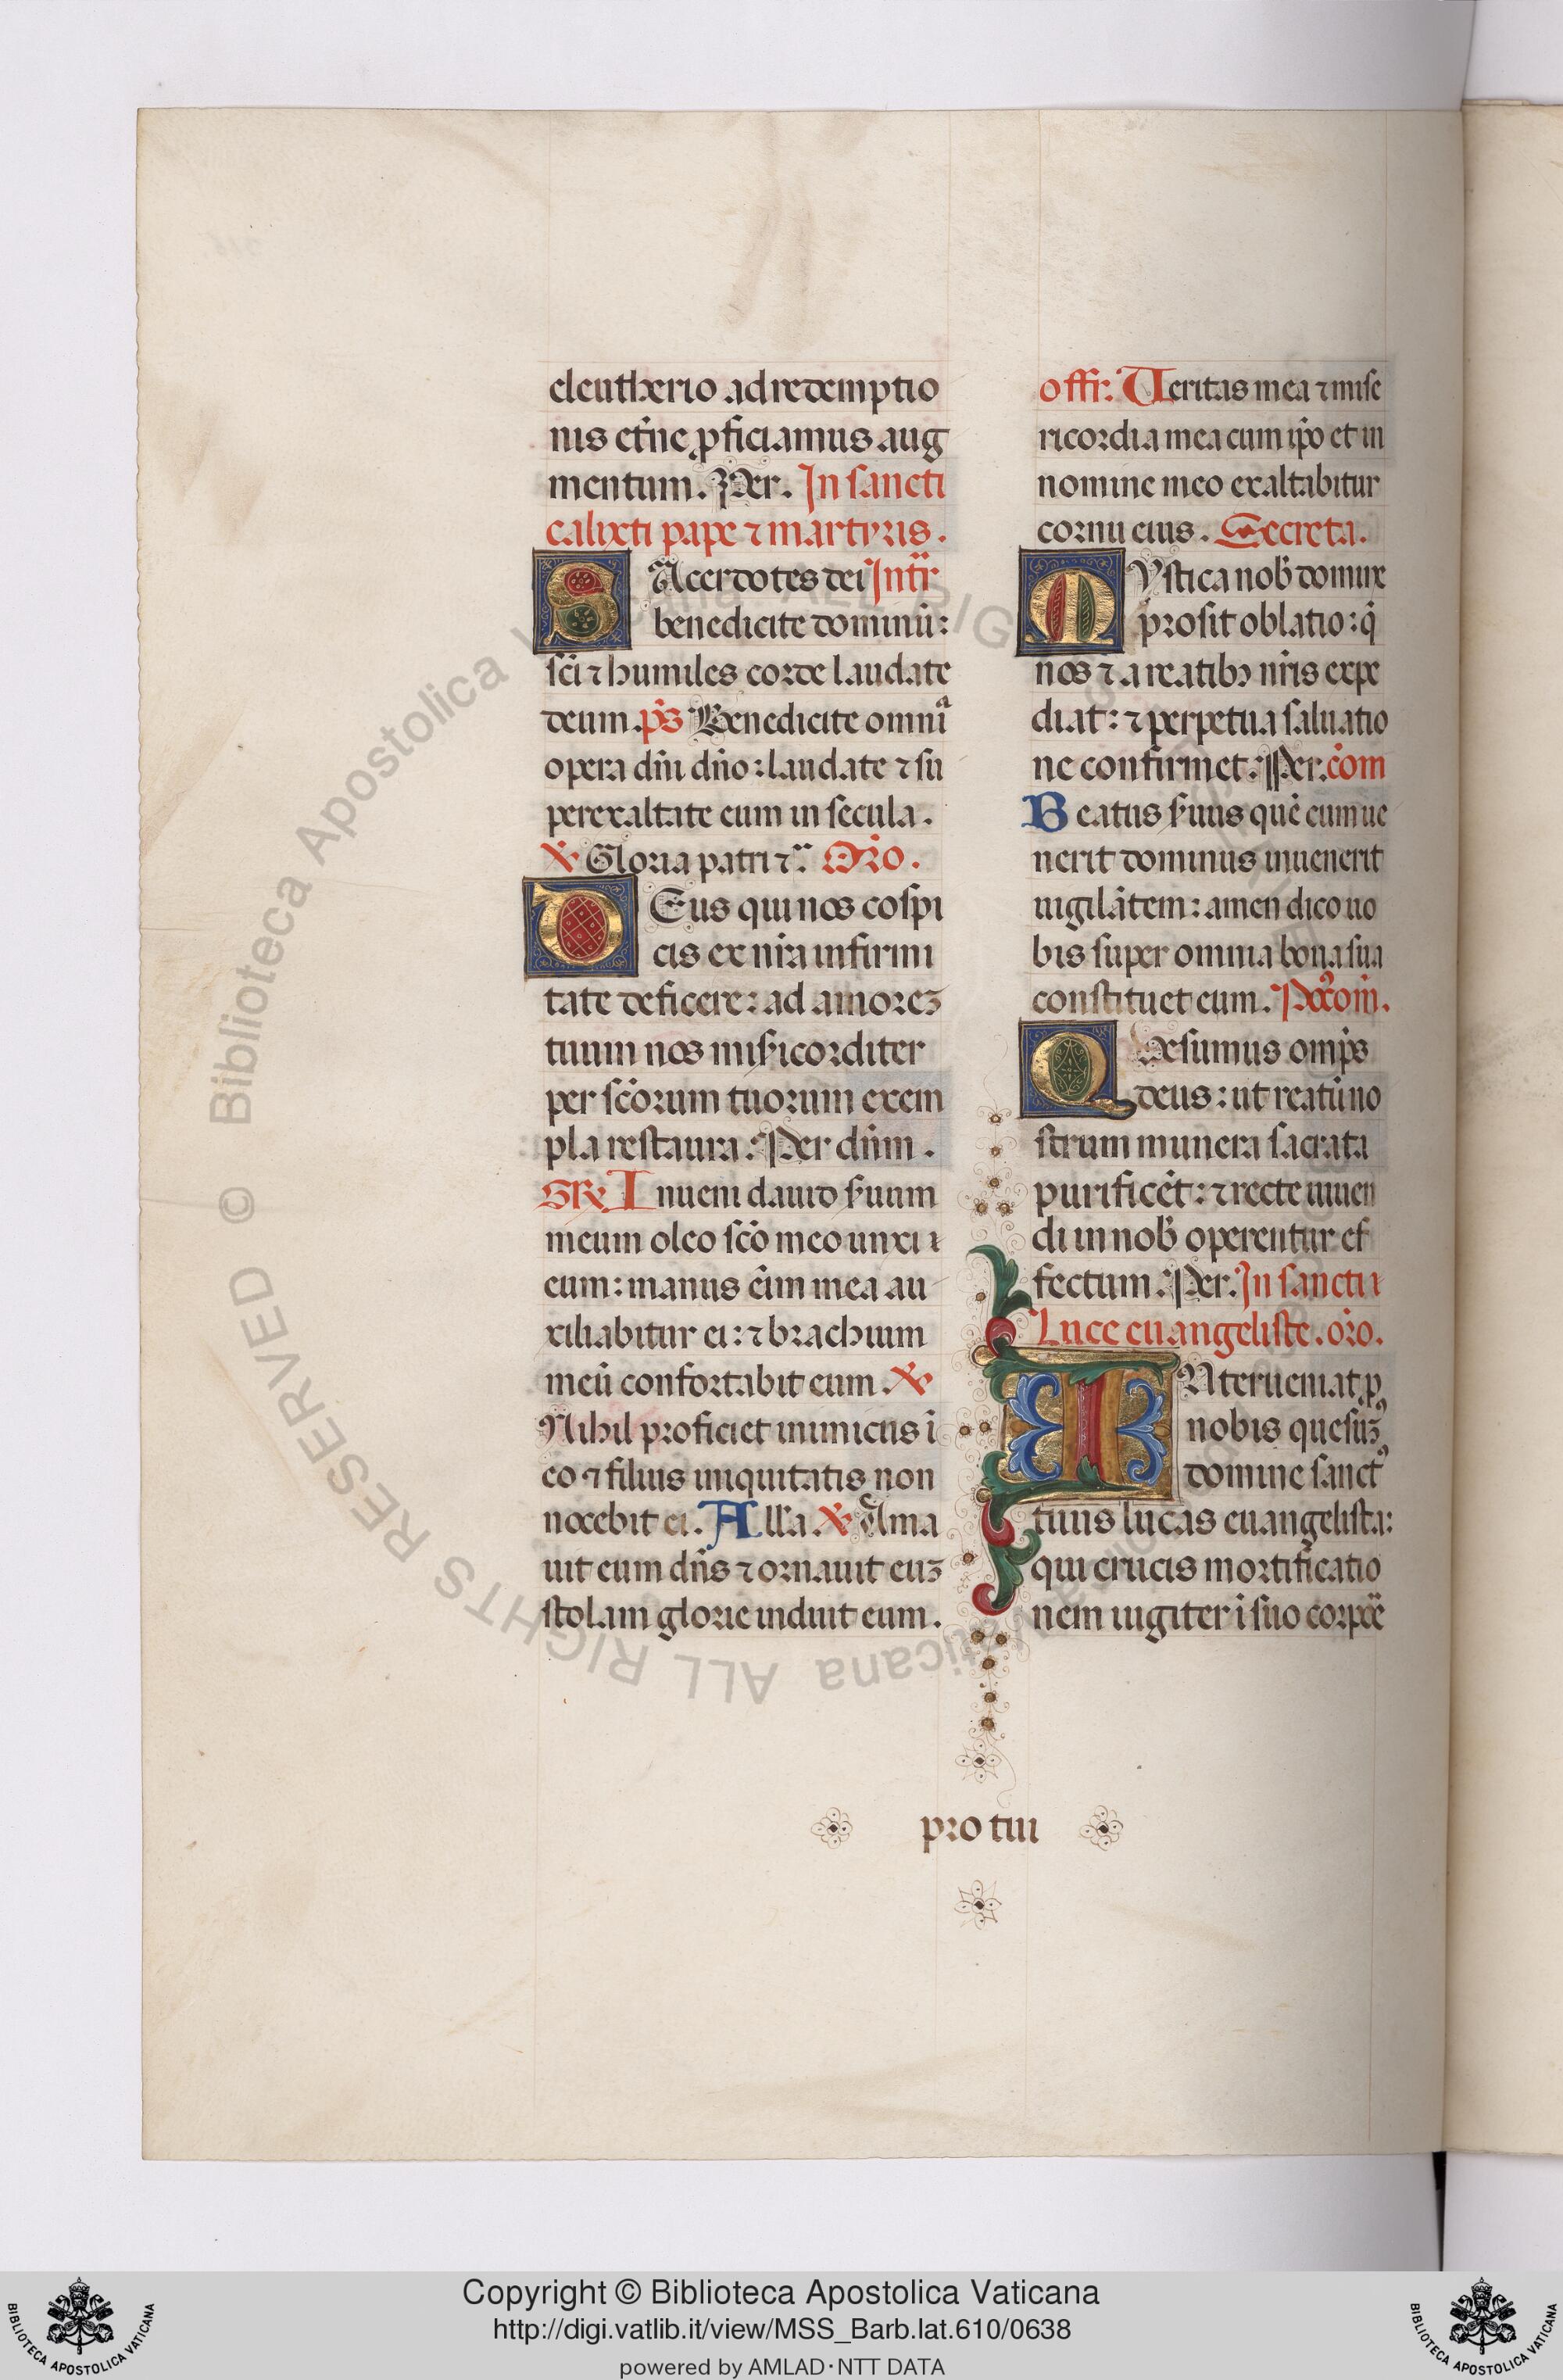 eleutherio ad redemptio
nis et̄ne ꝓficiamus aug
mentum. Per. In sancti
calixti pape ⁊ martyris.
SAcerdotes dei Intr̄
benedicite dominū:
sc̄i ⁊ humiles corde laudate
deum. ps̄ Benedicite omnia
opera dn̄i dn̄o: laudate ⁊ su
perexaltate eum in secula.
℣ Gloria patri ⁊ Or̄o.
DEus qui nos cōspi
cis ex nr̄a infirmi
tate deficere: ad amoreꝫ
tuum nos mis̄icorditer
per sc̄orum tuorum exem
pla restaura. Per dn̄m.
GR̄ Inueni dauid s̄uum
meum oleo sc̄o meo unxi
eum: manus eīm mea au
xiliabitur ei: ⁊ brachium
meū confortabit eum. ℣
Nihil proficiet inimicus ī
eo ⁊ filius iniquitatis non
nocebit ei. All̄a. ℣ Ama
uit eum dn̄s ⁊ ornauit euꝫ
stolam glorie induit eum.
offr̄. Ueritas mea ⁊ mise
ricordia mea cum ip̄o et in
nomine meo exaltabitur
cornu eius. Secreta.
MYstica nob̄ domine
prosit oblatio: q̄
nos ⁊ a reatibꝫ nr̄is expe
diat: ⁊ perpetua saluatio
ne confirmet. Per. cōm
Beatus s̄uus quē cum ue
nerit dominus inuenerit
uigilātem: amen dico uo
bis super omnia bona sua
constituet eum. Postcom̄.
Quesumus omp̄s
deus: ut reatū no
strum munera sacrata
purificēt: ⁊ recte uiuen
di in nob̄ operentur ef
fectum. Per. In sancti
Luce euangeliste. or̄o.
INterueniat ꝓ
nobis quesuꝫ
domine sanctꝰ
tuus lucas euangelista:
qui crucis mortificatio
nem iugiter ī suo corpoē
pro tui
© Biblioteca Apostolica Vaticana ALL RIGHTS RESERVED
Copyright © Biblioteca Apostolica Vaticana
http://digi.vatlib.it/view/MSS_Barb.lat.610/0638
powered by AMLAD·NTT DATA
BIBLIOTECA APOSTOLICA VATICANA
BIBLIOTECA APOSTOLICA VATICANA